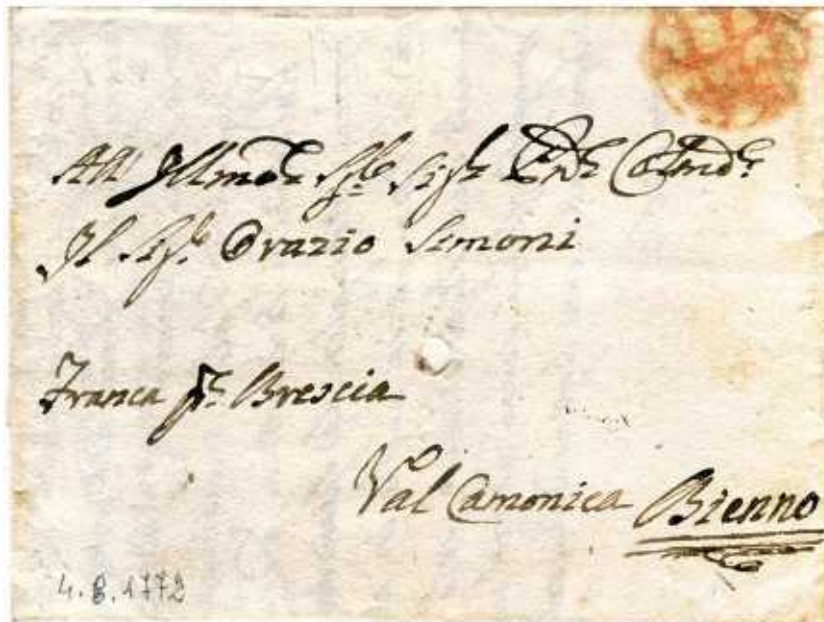 All' Illmo Sigr Sigr Prne Colmo
Il Sigr Orazio Simoni
Franca pr Brescia
Val Camonica Bienno
4.8.1772